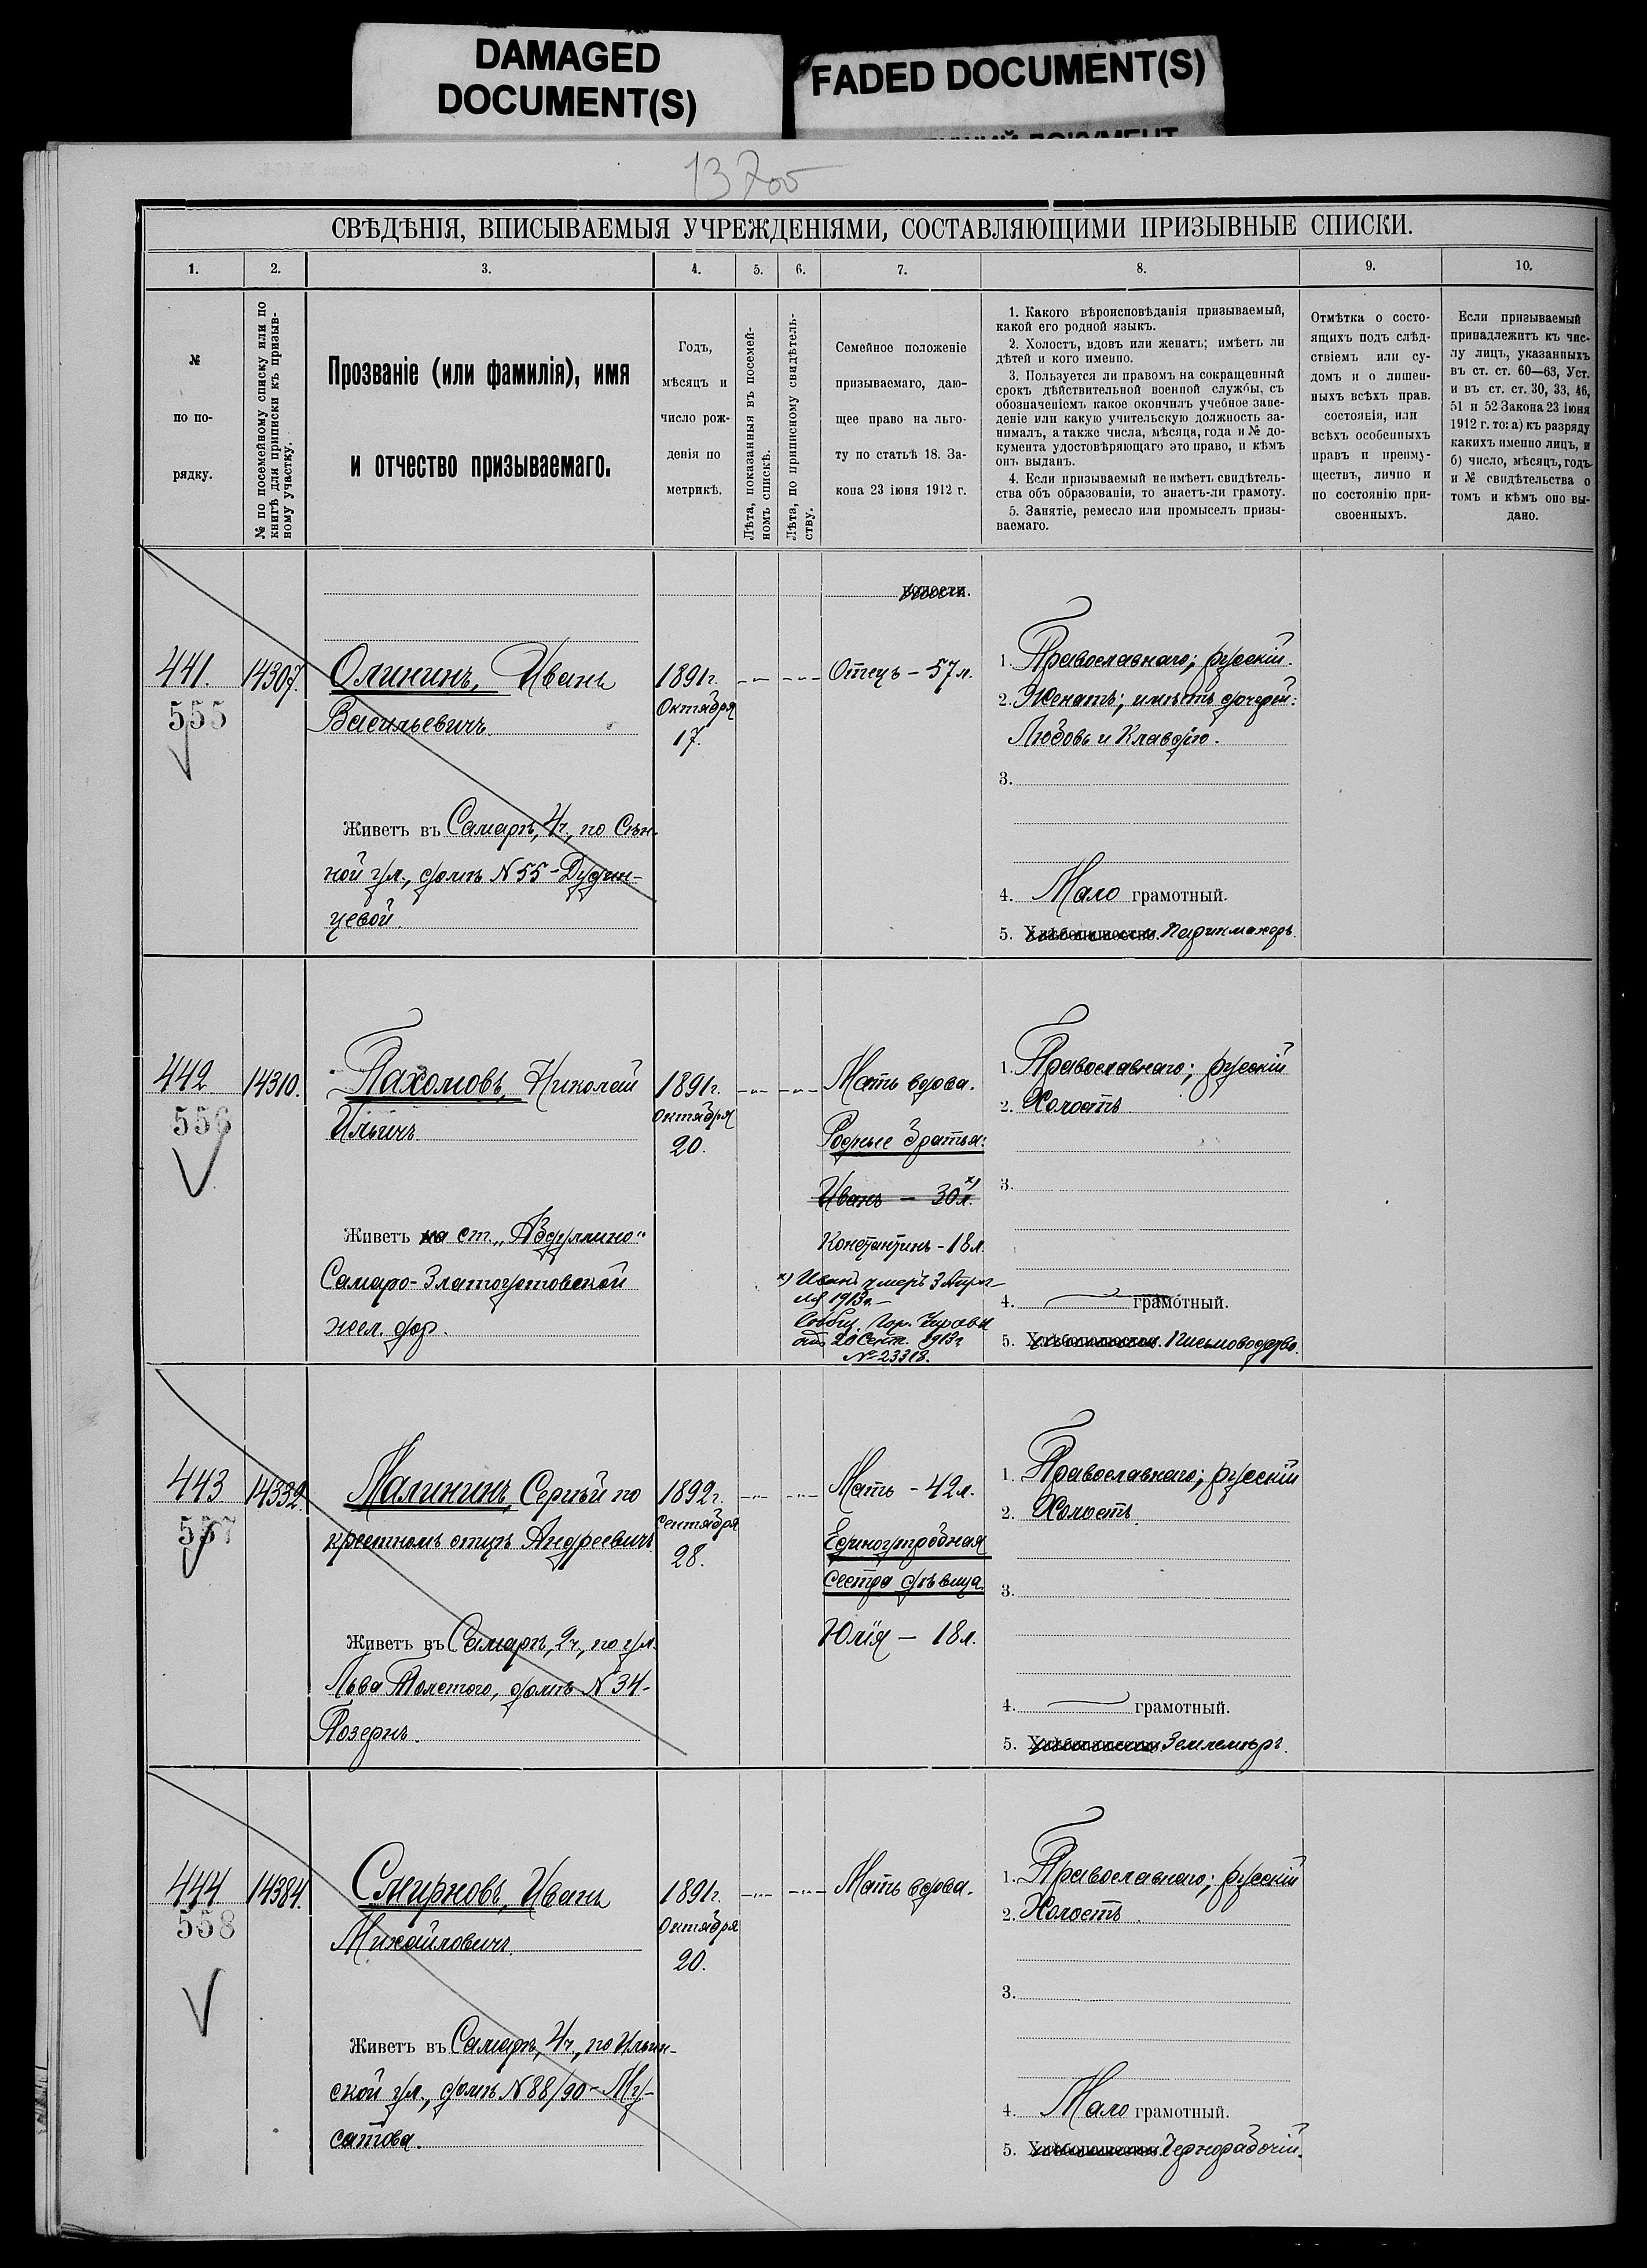 DAMAGED
DOCUMENT(S)
FADED DOCUMENT(S)
13700
СВѢДѢНІЯ, ВПИСЫВАЕМЫЯ УЧРЕЖДЕНІЯМИ, СОСТАВЛЯЮЩИМИ ПРИЗЫВНЫЕ СПИСКИ.
1. 2. 3. 4. 5. 6. 7. 8. 9. 10.
№
по по-
рядку.
№ по посемейному списку или по
книгѣ для приписки къ призыв-
ному участку.
Прозваніе (или фамилія), имя
и отчество призываемаго.
Годъ,
мѣсяцъ и
число рож-
денія по
метрикѣ.
Лѣта, показанныя въ посемей-
номъ спискѣ.
Лѣта, по приписному свидѣтель-
ству.
Семейное положеніе
призываемаго, даю-
щее право на льго-
ту по статьѣ 18. За-
кона 23 іюня 1912 г.
1. Какого вѣроисповѣданія призываемый,
какой его родной языкъ.
2. Холостъ, вдовъ или женатъ; имѣетъ ли
дѣтей и кого именно.
3. Пользуется ли правомъ на сокращенный
срокъ дѣйствительной военной службы, съ
обозначеніемъ какое окончилъ учебное заве-
деніе или какую учительскую должность за-
нималъ, а также числа, мѣсяца, года и № до-
кумента удостовѣряющаго это право, и кѣмъ
онъ выданъ.
4. Если призываемый не имѣетъ свидѣтель-
ства объ образованіи, то знаетъ-ли грамоту.
5. Занятіе, ремесло или промыселъ призы-
ваемаго.
Отмѣтка о состо-
ящихъ подъ слѣд-
ствіемъ или су-
домъ и о лишен-
ныхъ всѣхъ прав.
состоянія, или
всѣхъ особенныхъ
правъ и преиму-
ществъ, лично и
по состоянію при-
своенныхъ.
Если призываемый
принадлежитъ къ чис-
лу лицъ, указанныхъ
въ ст. ст. 60—63, Уст.
и въ ст. ст. 30, 33, 46,
51 и 52 Закона 23 іюня
1912 г. то: а) къ разряду
какихъ именно лицъ, и
б) число, мѣсяцъ, годъ
и № свидѣтельства о
томъ и кѣмъ оно вы-
дано.
волости.
441.
555
14307.
Олининъ, Иванъ
Васильевичъ.
Живетъ въ Самарѣ, 4ч., по Сѣн-
ной ул., домъ N 55 - Дудин-
цевой.
1891г.
Октября
17.
Отецъ - 57 л.
1. Православнаго; русскій.
2. Женатъ; имѣетъ дочерей:
Любовь и Клавдію.
3.
4. Мало грамотный.
5. Хлѣбопашество. Парикмахеръ.
442.
556
14310.
Пахомовъ, Николай
Ильичъ
Живетъ на ст. „Абдуллино"
Самаро-Златоустовской
жел. дор.
1891г.
октября
20.
Мать вдова.
Родные братья:
Иванъ - 30 л. х)
Константинъ - 18 л.
х) Иванъ умеръ 3 Апрѣ-
ля 1913г. -
Сообщ. Гор. Управы
отъ 20 Сент. 1913г
№ 23318.
1. Православнаго; русскій
2. Холостъ
3.
4. грамотный.
5. Хлѣбопашество. Письмоводство.
443
557
14332.
Малининъ, Сергѣй по
крестномъ отцѣ Андреевичъ
Живетъ въ Самарѣ, 2ч., по ул.
Льва Толстого, домъ N 34 -
Позернъ.
1892г.
сентября
28.
Мать - 42 л.
Единоутробная
сестра дѣвица
Юлія - 18 л.
1. Православнаго; русскій
2. Холостъ
3.
4. грамотный.
5. Хлѣбопашество. Землемѣръ.
444
558
14384.
Смирновъ, Иванъ
Михайловичъ.
Живетъ въ Самарѣ, 4ч., по Ильин-
ской ул., домъ N 88/90 - Му-
сатова.
1891г.
Октября
20.
Мать вдова.
1. Православнаго; русскій
2. Холостъ.
3.
4. Мало грамотный.
5. Хлѣбопашество. Чернорабочій.